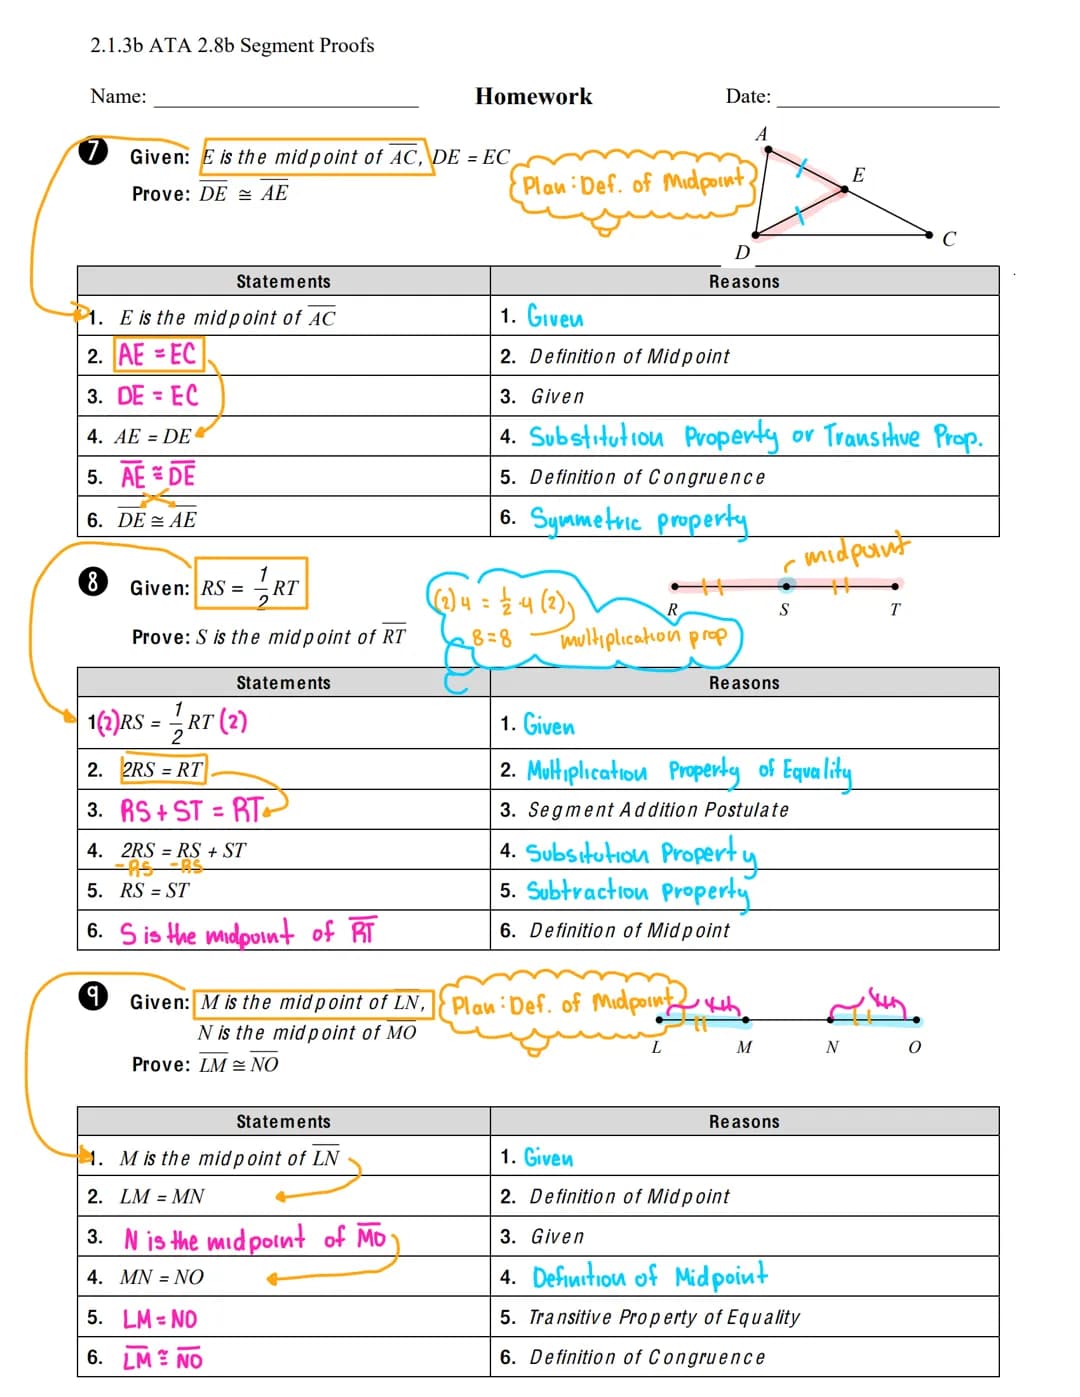 2.1.3b ATA 2.8b Segment Proofs
Name: Homework Date:
7 Given: E is the midpoint of AC, DE = EC
Prove: DE ≅ AE
Plan: Def. of Midpoint
A
E
D
C
Statements Reasons
1. E is the midpoint of AC 1. Given
2. AE = EC 2. Definition of Midpoint
3. DE = EC 3. Given
4. AE = DE 4. Substitution Property or Transitive Prop.
5. AE ≅ DE 5. Definition of Congruence
6. DE ≅ AE 6. Symmetric property
8 Given: RS = 1/2 RT
Prove: S is the midpoint of RT
(2) 4 = 1/2 · 4 (2)
8 = 8 multiplication prop
midpoint
R S T
Statements Reasons
1 (2) RS = 1/2 RT (2) 1. Given
2. 2RS = RT 2. Multiplication Property of Equality
3. RS + ST = RT 3. Segment Addition Postulate
4. 2RS = RS + ST 4. Subsitution Property
-RS -RS
5. RS = ST 5. Subtraction Property
6. S is the midpoint of RT 6. Definition of Midpoint
9 Given: M is the midpoint of LN,
N is the midpoint of MO
Prove: LM ≅ NO
Plan: Def. of Midpoint
L M N O
Statements Reasons
1. M is the midpoint of LN 1. Given
2. LM = MN 2. Definition of Midpoint
3. N is the midpoint of MO 3. Given
4. MN = NO 4. Definition of Midpoint
5. LM = NO 5. Transitive Property of Equality
6. LM ≅ NO 6. Definition of Congruence